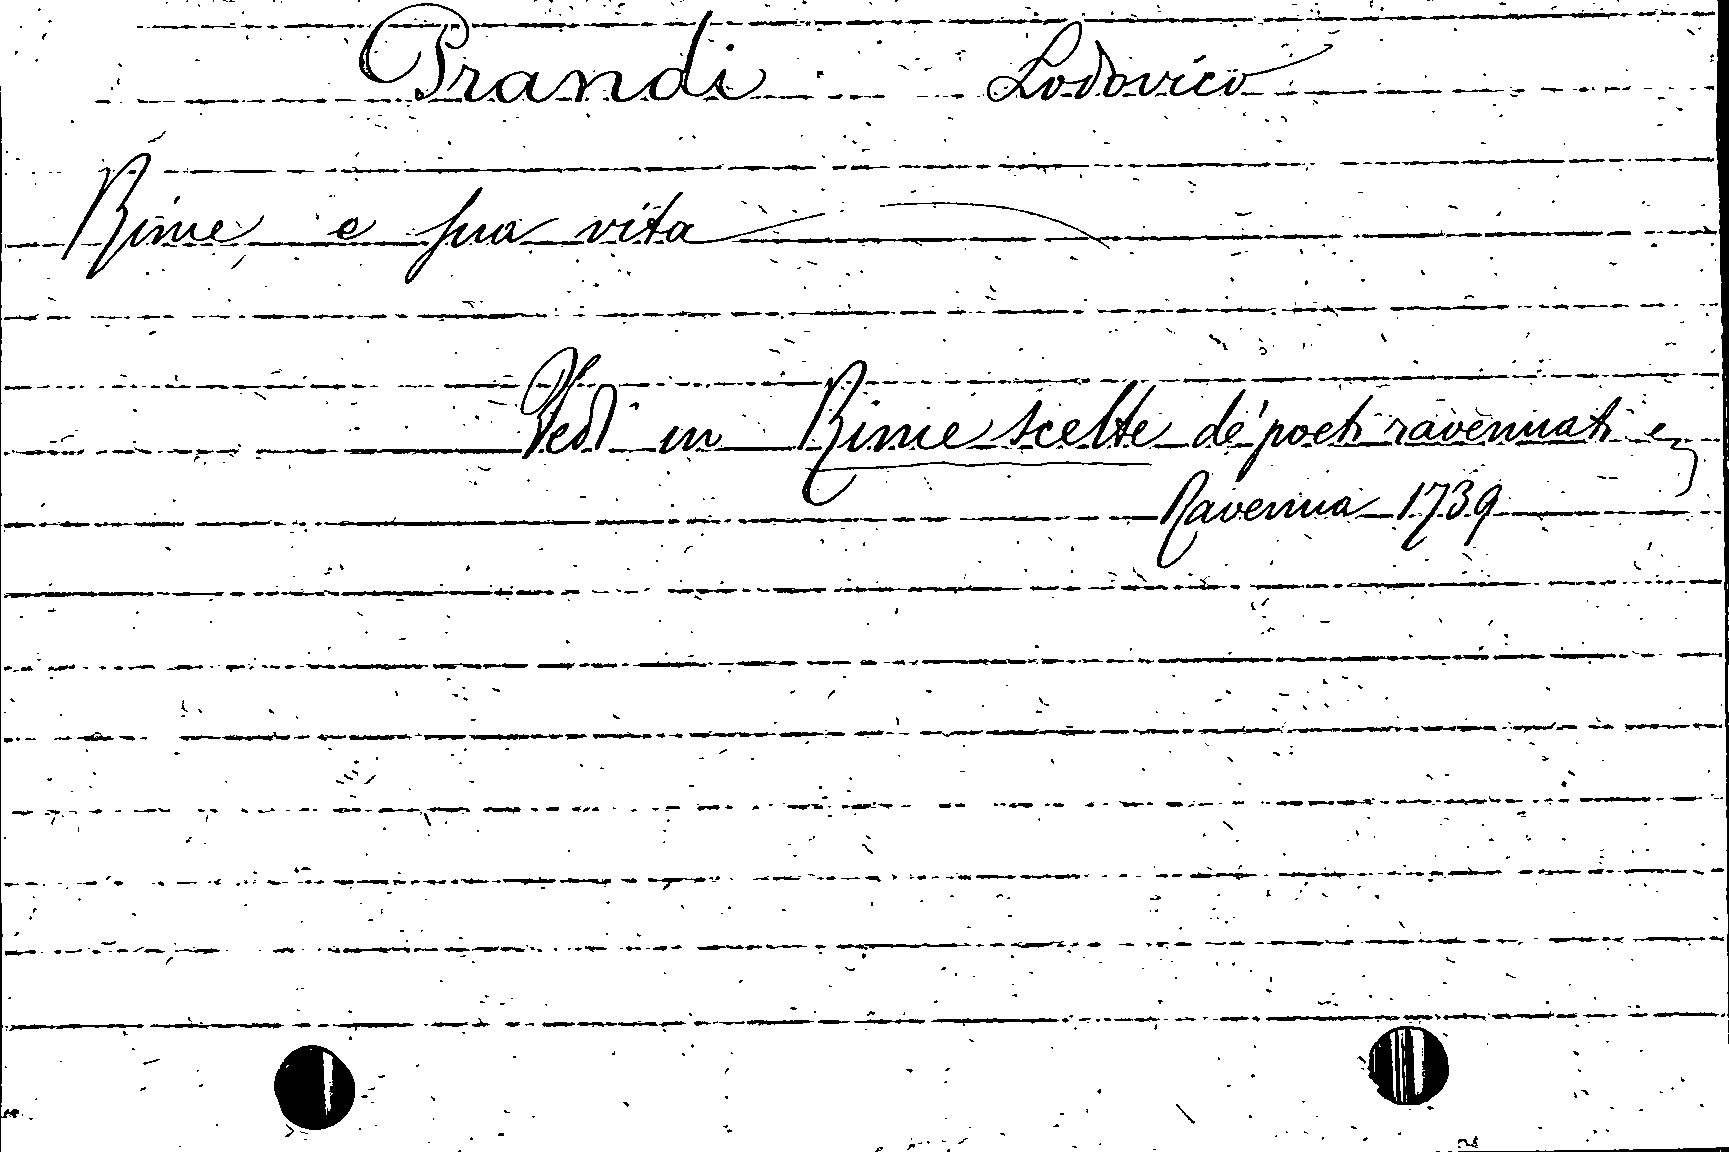 Prandi Lodovico
Rime, e sua vita
Vedi in Rime scelte de' poeti ravennati
Ravenna 1739